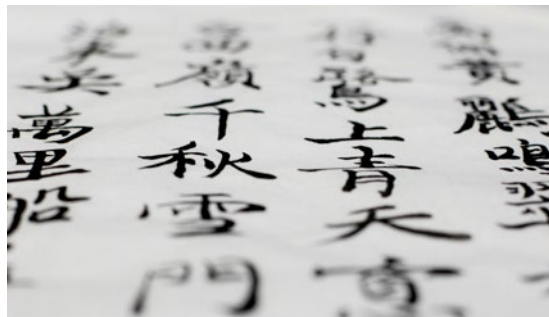 黃鸝鳴翠
行白鷺上青天
西嶺千秋雪門
東吳萬里船